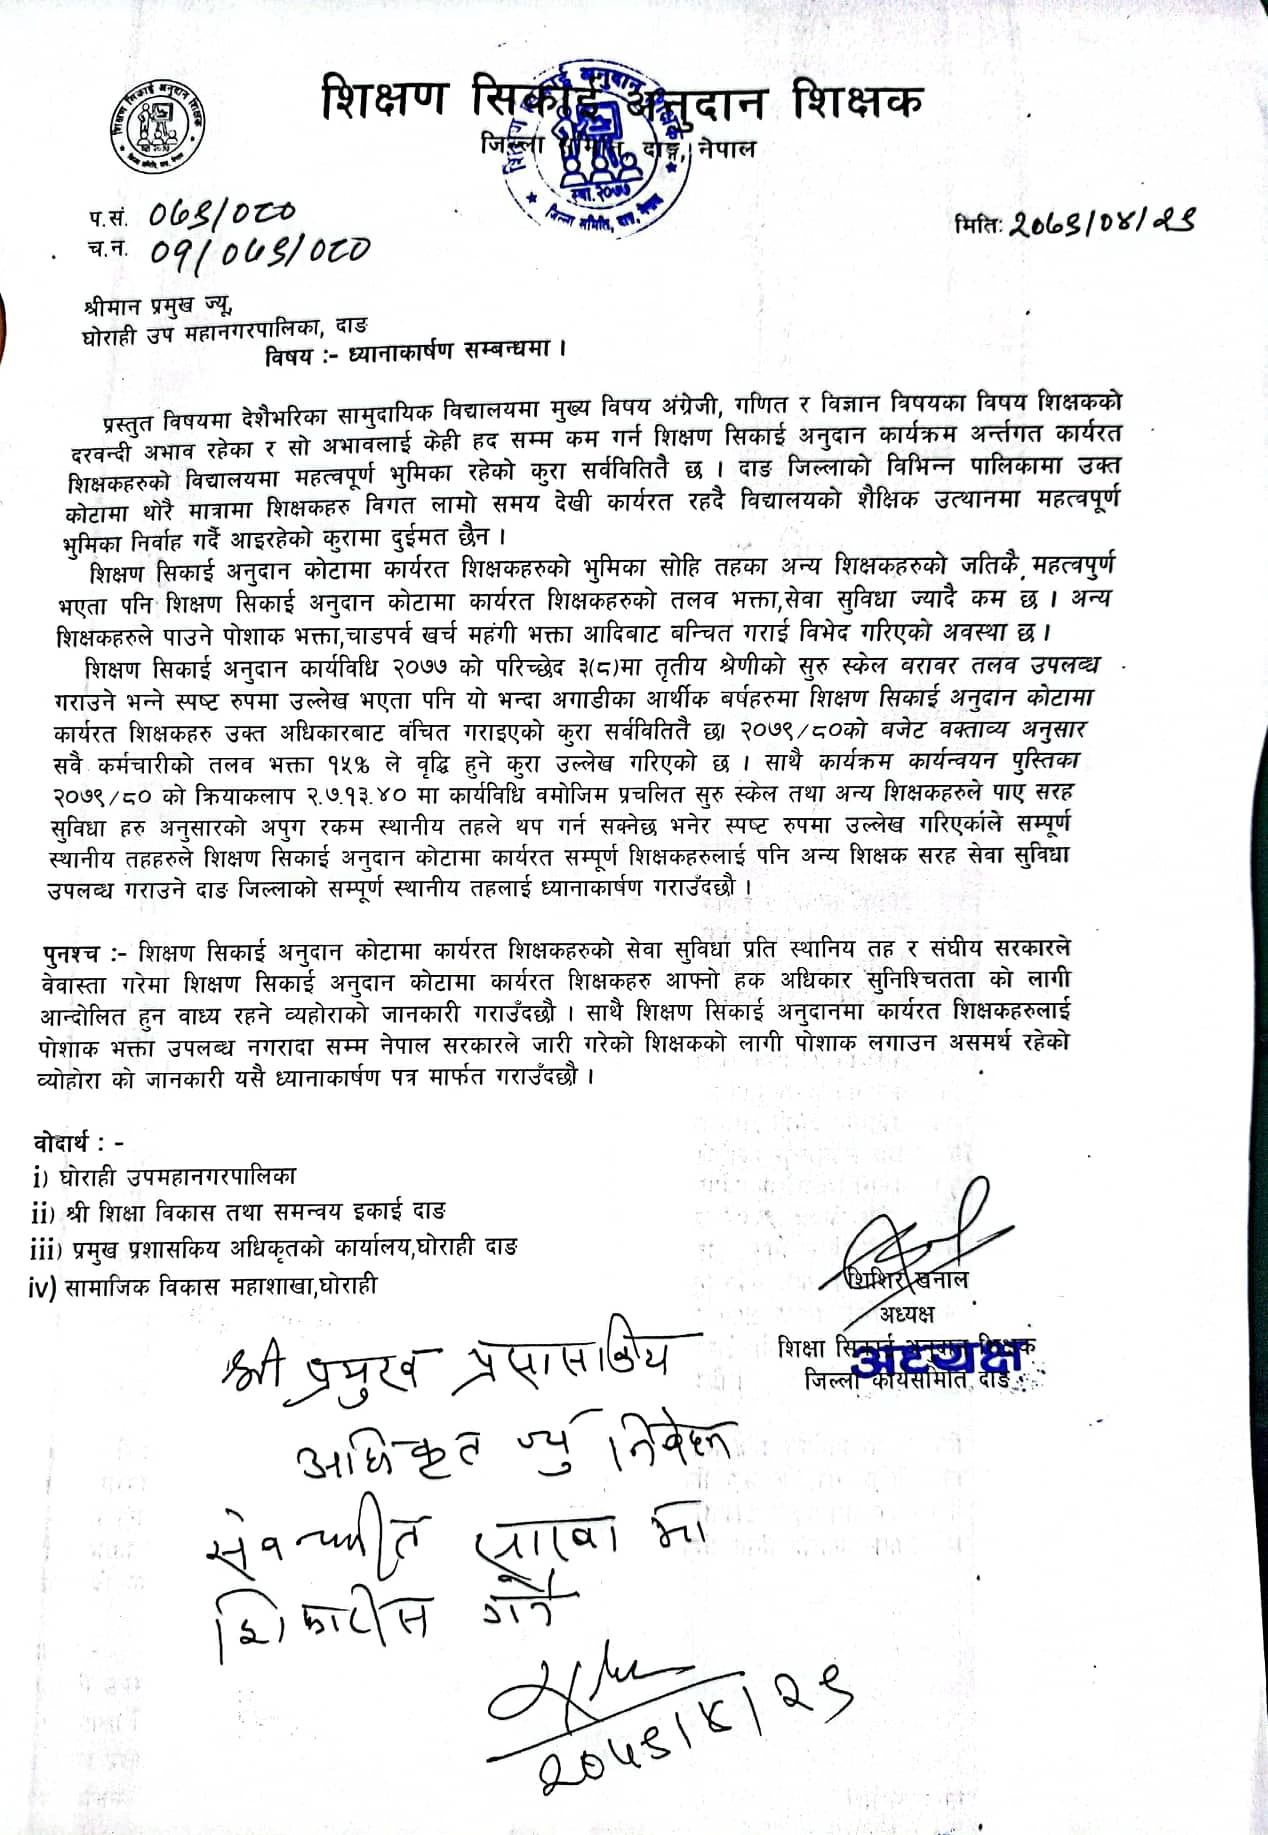 शिक्षण सिकाई अनुदान शिक्षक
जिल्ला समिति, दाङ्ग, नेपाल
प.सं. ०७९/०८०
च.न. ०१/०७९/०८०
मिति: २०७९/०४/२९
श्रीमान प्रमुख ज्यू,
घोराही उप महानगरपालिका, दाङ
विषय :- ध्यानाकार्षण सम्बन्धमा ।
प्रस्तुत विषयमा देशैभरिका सामुदायिक विद्यालयमा मुख्य विषय अंग्रेजी, गणित र विज्ञान विषयका विषय शिक्षकको
दरवन्दी अभाव रहेका र सो अभावलाई केही हद सम्म कम गर्न शिक्षण सिकाई अनुदान कार्यक्रम अर्न्तगत कार्यरत
शिक्षकहरुको विद्यालयमा महत्वपूर्ण भुमिका रहेको कुरा सर्वविितितै छ । दाङ जिल्लाको विभिन्न पालिकामा उक्त
कोटामा थोरै मात्रामा शिक्षकहरु विगत लामो समय देखी कार्यरत रहदै विद्यालयको शैक्षिक उत्थानमा महत्वपूर्ण
भुमिका निर्वाह गर्दै आइरहेको कुरामा दुईमत छैन ।
शिक्षण सिकाई अनुदान कोटामा कार्यरत शिक्षकहरुको भुमिका सोहि तहका अन्य शिक्षकहरुको जतिकै महत्वपुर्ण
भएता पनि शिक्षण सिकाई अनुदान कोटामा कार्यरत शिक्षकहरुको तलव भक्ता,सेवा सुविधा ज्यादै कम छ । अन्य
शिक्षकहरुले पाउने पोशाक भक्ता,चाडपर्व खर्च महंगी भक्ता आदिबाट बन्चित गराई विभेद गरिएको अवस्था छ ।
शिक्षण सिकाई अनुदान कार्यविधि २०७७ को परिच्छेद ३(८)मा तृतीय श्रेणीको सुरु स्केल बरावर तलव उपलब्ध
गराउने भन्ने स्पष्ट रुपमा उल्लेख भएता पनि यो भन्दा अगाडीका आर्थीक बर्षहरुमा शिक्षण सिकाई अनुदान कोटामा
कार्यरत शिक्षकहरु उक्त अधिकारबाट वंचित गराइएको कुरा सर्वविितितै छ। २०७९/८०को बजेट वक्ताव्य अनुसार
सवै कर्मचारीको तलव भक्ता १५% ले वृद्धि हुने कुरा उल्लेख गरिएको छ । साथै कार्यक्रम कार्यन्वयन पुस्तिका
२०७९/८० को क्रियाकलाप २.७.१३.४० मा कार्यविधि वमोजिम प्रचलित सुरु स्केल तथा अन्य शिक्षकहरुले पाए सरह
सुविधा हरु अनुसारको अपुग रकम स्थानीय तहले थप गर्न सक्नेछ भनेर स्पष्ट रुपमा उल्लेख गरिएकाले सम्पूर्ण
स्थानीय तहहरुले शिक्षण सिकाई अनुदान कोटामा कार्यरत सम्पूर्ण शिक्षकहरुलाई पनि अन्य शिक्षक सरह सेवा सुविधा
उपलब्ध गराउने दाङ जिल्लाको सम्पूर्ण स्थानीय तहलाई ध्यानाकार्षण गराउँदछौ ।
पुनश्च :- शिक्षण सिकाई अनुदान कोटामा कार्यरत शिक्षकहरुको सेवा सुविधा प्रति स्थानिय तह र संघीय सरकारले
वेवास्ता गरेमा शिक्षण सिकाई अनुदान कोटामा कार्यरत शिक्षकहरु आफ्नो हक अधिकार सुनिश्चितता को लागी
आन्दोलित हुन वाध्य रहने व्यहोराको जानकारी गराउँदछौ । साथै शिक्षण सिकाई अनुदानमा कार्यरत शिक्षकहरुलाई
पोशाक भक्ता उपलब्ध नगरादा सम्म नेपाल सरकारले जारी गरेको शिक्षकको लागी पोशाक लगाउन असमर्थ रहेको
व्योहोरा को जानकारी यसै ध्यानाकार्षण पत्र मार्फत गराउँदछौ ।
वोदार्थ : -
i) घोराही उपमहानगरपालिका
ii) श्री शिक्षा विकास तथा समन्वय इकाई दाङ
iii) प्रमुख प्रशासकिय अधिकृतको कार्यालय,घोराही दाङ
iv) सामाजिक विकास महाशाखा,घोराही
शिशिर खनाल
अध्यक्ष
शिक्षा सिकाई अनुदान शिक्षक
अध्यक्ष
जिल्ला कार्यसमिति दाङ
श्री प्रमुख प्रसासकिय
अधिकृत ज्यु निवेदन
सम्वन्धीत साखा मा
सिफारीस गर्ने
२०७९/४/२९